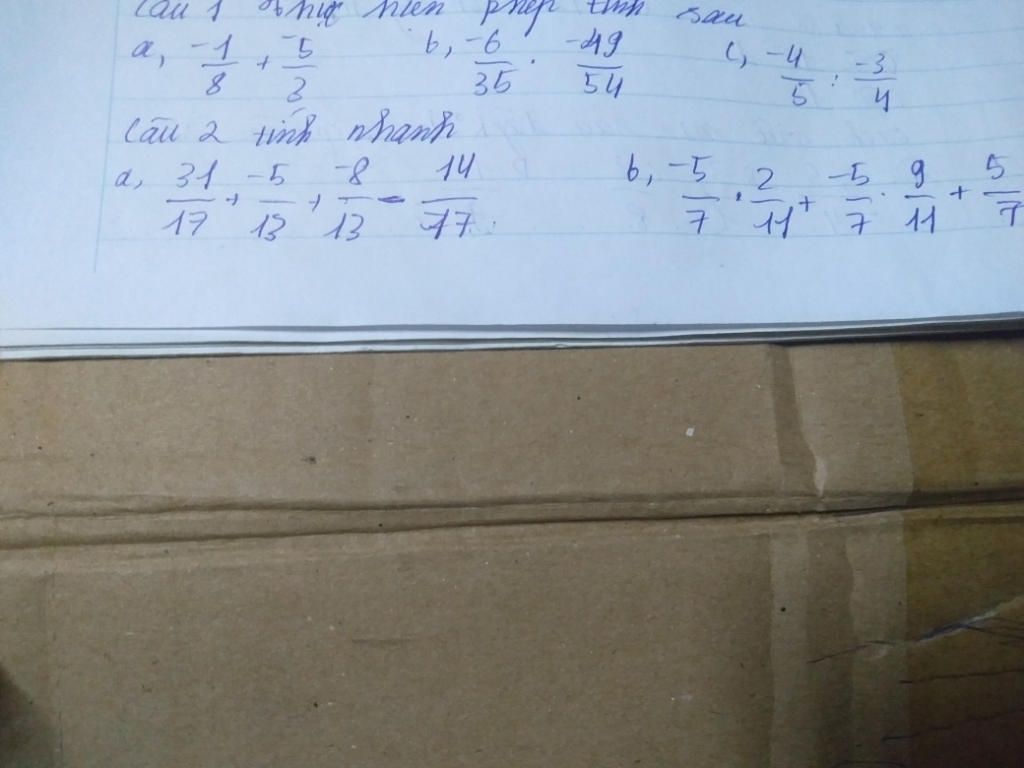 Câu 1 Thực hiện phép tính sau
a, -1/8 + -5/3 b, -6/35 . -49/54 c, -4/5 : -3/4
Câu 2 tính nhanh
a, 31/17 + -5/13 + -8/13 - 14/17 b, -5/7 . 2/11 + -5/7 . 9/11 + 5/7